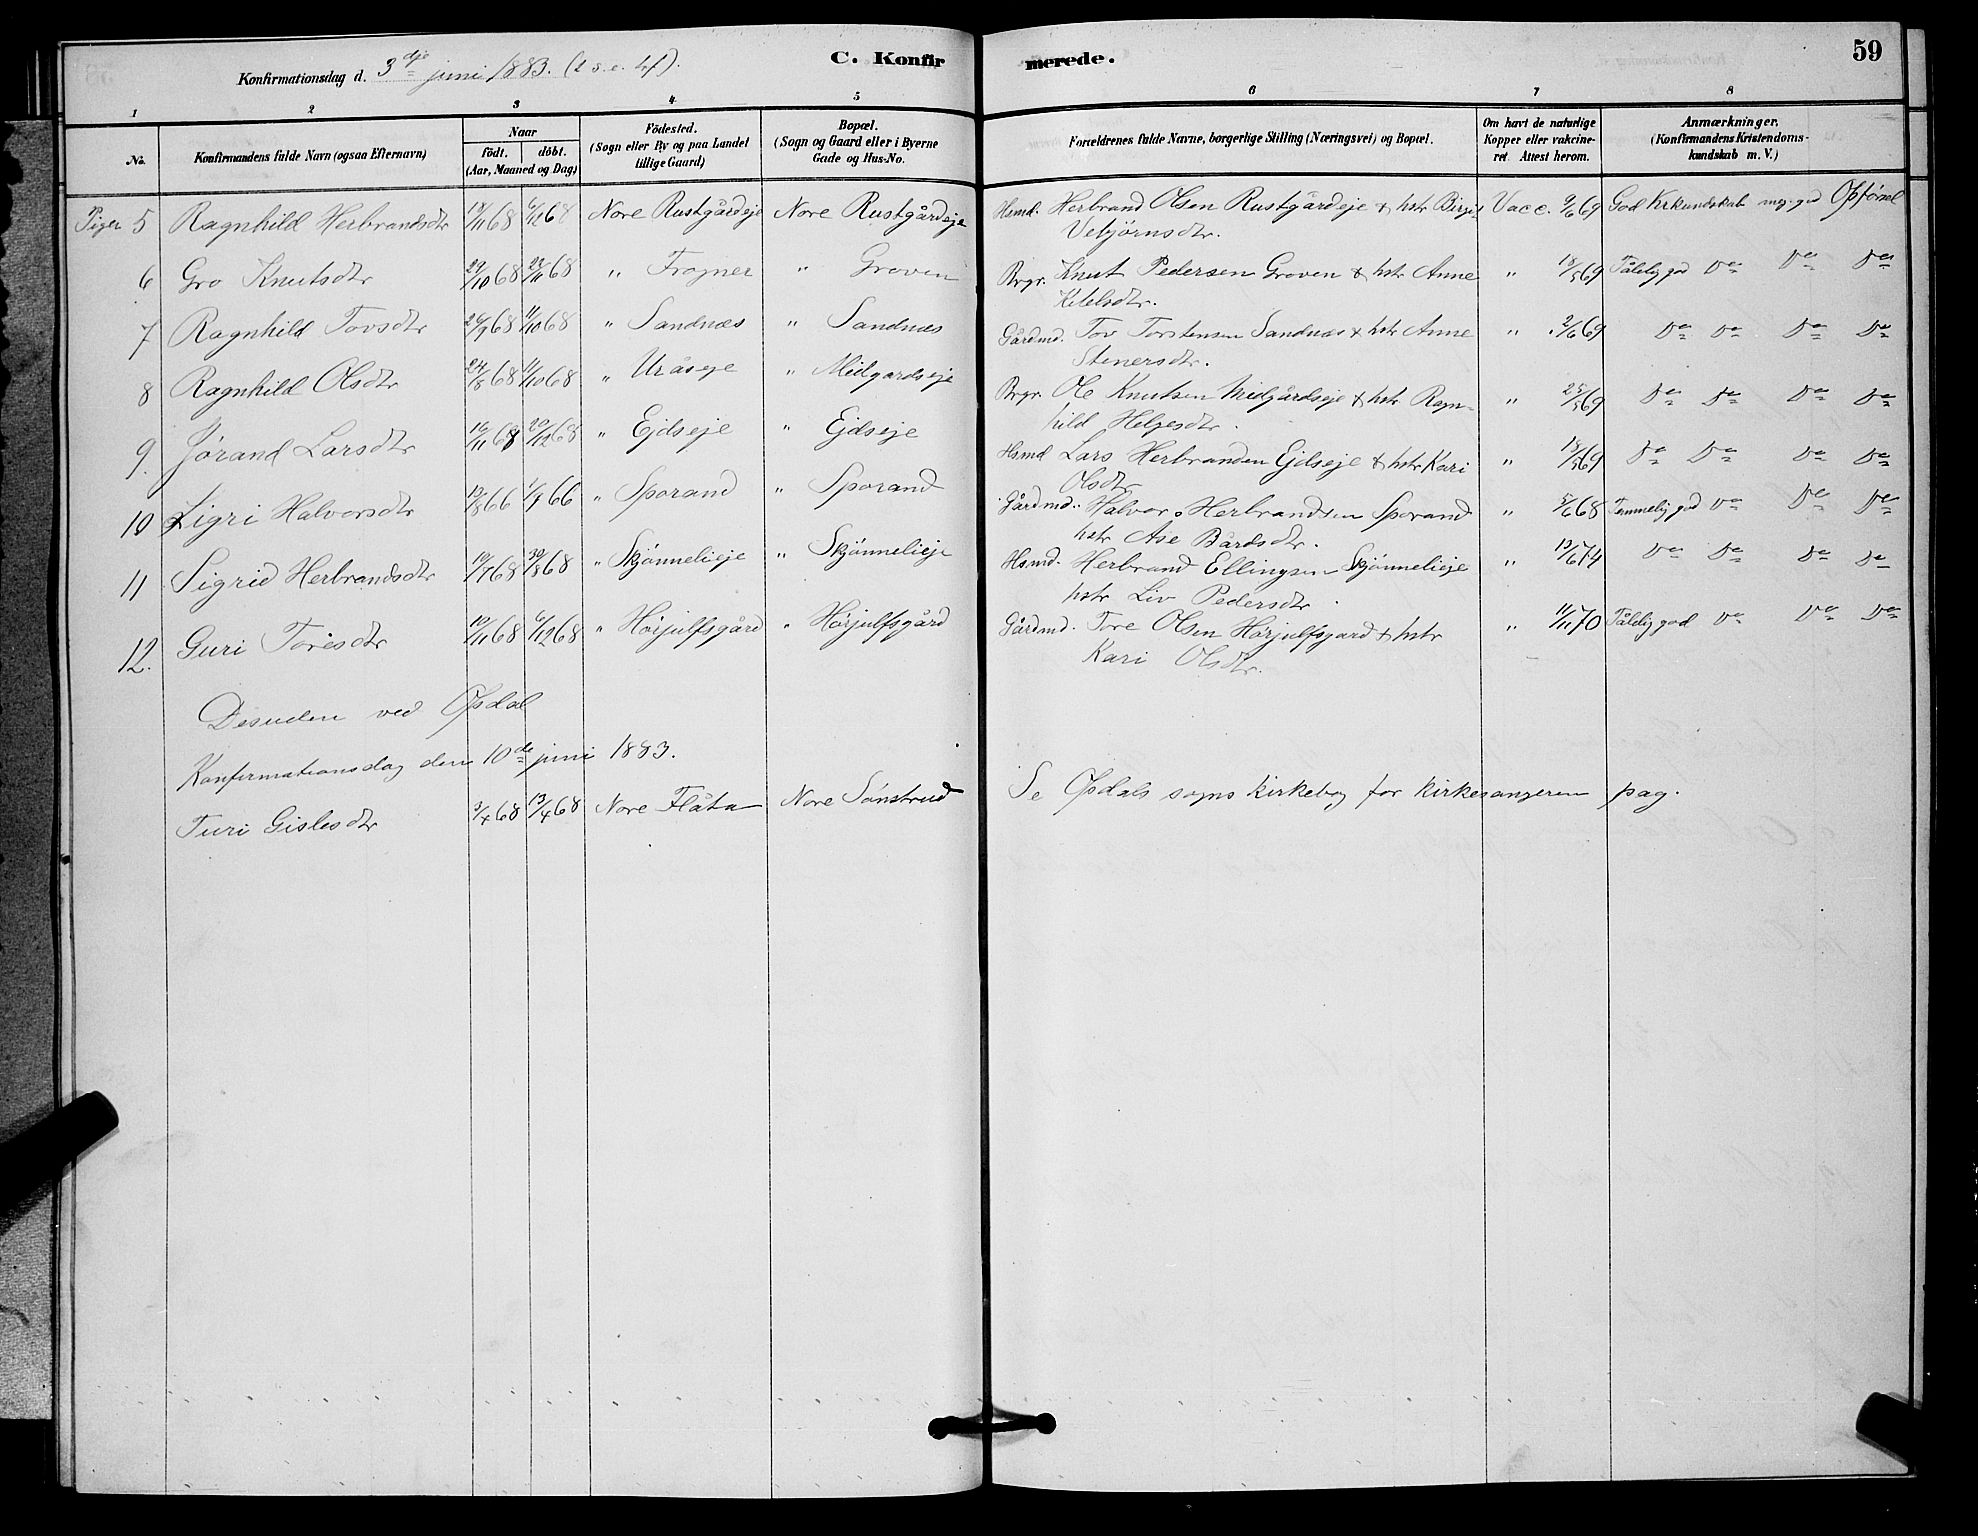 Konfirmationsdag d. 3dje juni 1883. (2 s. e. tf).
C. Konfir merede. 59
1 2 3 4 5 6 7 8
No. Konfirmandens fulde Navn (ogsaa Efternavn) Naar födt. döbt. (Aar, Maaned og Dag) Födested. (Sogn eller By og paa Landet tillige Gaard) Bopæl. (Sogn og Gaard eller i Byerne Gade og Hus-No. Forældrenes fulde Navne, borgerlige Stilling (Næringsvei) og Bopæl. Om havt de naturlige Kopper eller vakcineret. Attest herom. Anmærkninger. (Konfirmandens Kristendomskundskab m. V.)
Piger 5 Ragnhild Herbrandsdtr 18/11 68 6/12 68 Nore Rustgårdeje Nore Rustgårdeje Hsmd. Herbrand Olsen Rustgårdeje & hstr Birgit Vacc. 9/6 69 God Krkundskab meg. god Opförsel
Vebjørnsdtr.
6 Gro Knutsdtr 29/10 68 22/11 68 " Frogner " Groven Brgr. Knut Pedersen Groven & hstr Anne " 18/5 69 Tålelig god Do Do Do
Ketelsdtr.
7 Ragnhild Tovsdtr 26/9 68 11/10 68 " Sandnæs " Sandnæs Gårdmd. Tov Torstensen Sandnæs & hstr Anne " 2/6 69 Do Do Do Do
Stenersdtr.
8 Ragnhild Olsdtr 24/8 68 11/10 68 " Uråseje " Midgardseje Brgr. Ole Knutsen Midgårdseje & hstr Ragn- " 25/5 69 Do Do Do Do
hild Helgesdtr.
9. Jørand Larsdtr 16/11 68 20/12 68 " Ejdseje " Ejdseje Hsmd Lars Herbranden Ejdseje & hstr Kari " 18/5 69 Do Do Do Do
Olsdtr
10 Ligri Halvorsdtr 13/8 66 1/9 66 " Sporand " Sporand Gårdmd. Halvor Herbrandsen Sporand " 5/6 68 Temmelig god Do Do Do
hstr Ase Bårdsdtr.
11 Sigrid Herbrandsdtr 19/7 68 30/8 68 " Skjønnelieje " Skjønnelieje Hsmd. Herbrand Ellingsen Skjønnelieje " 13/6 74 Do Do Do Do
hstr Liv Pedersdtr.
12. Guri Toresdtr 10/11 68 6/12 68 " Hørjulfsgård " Hørjulfsgård Gårdmd. Tore Olsen Hørjulfsgard & hstr " 11/11 70 Tålelig god Do Do Do
Kari Olsdtr.
Desuden ved Opdal
Konfirmationsdag den 10de juni 1883.
Turi Gislesdtr 3/4 68 13/4 68 Nore Flåta Nore Sønstrud Se Opdals sogns kirkebog for kirkesangeren pag.